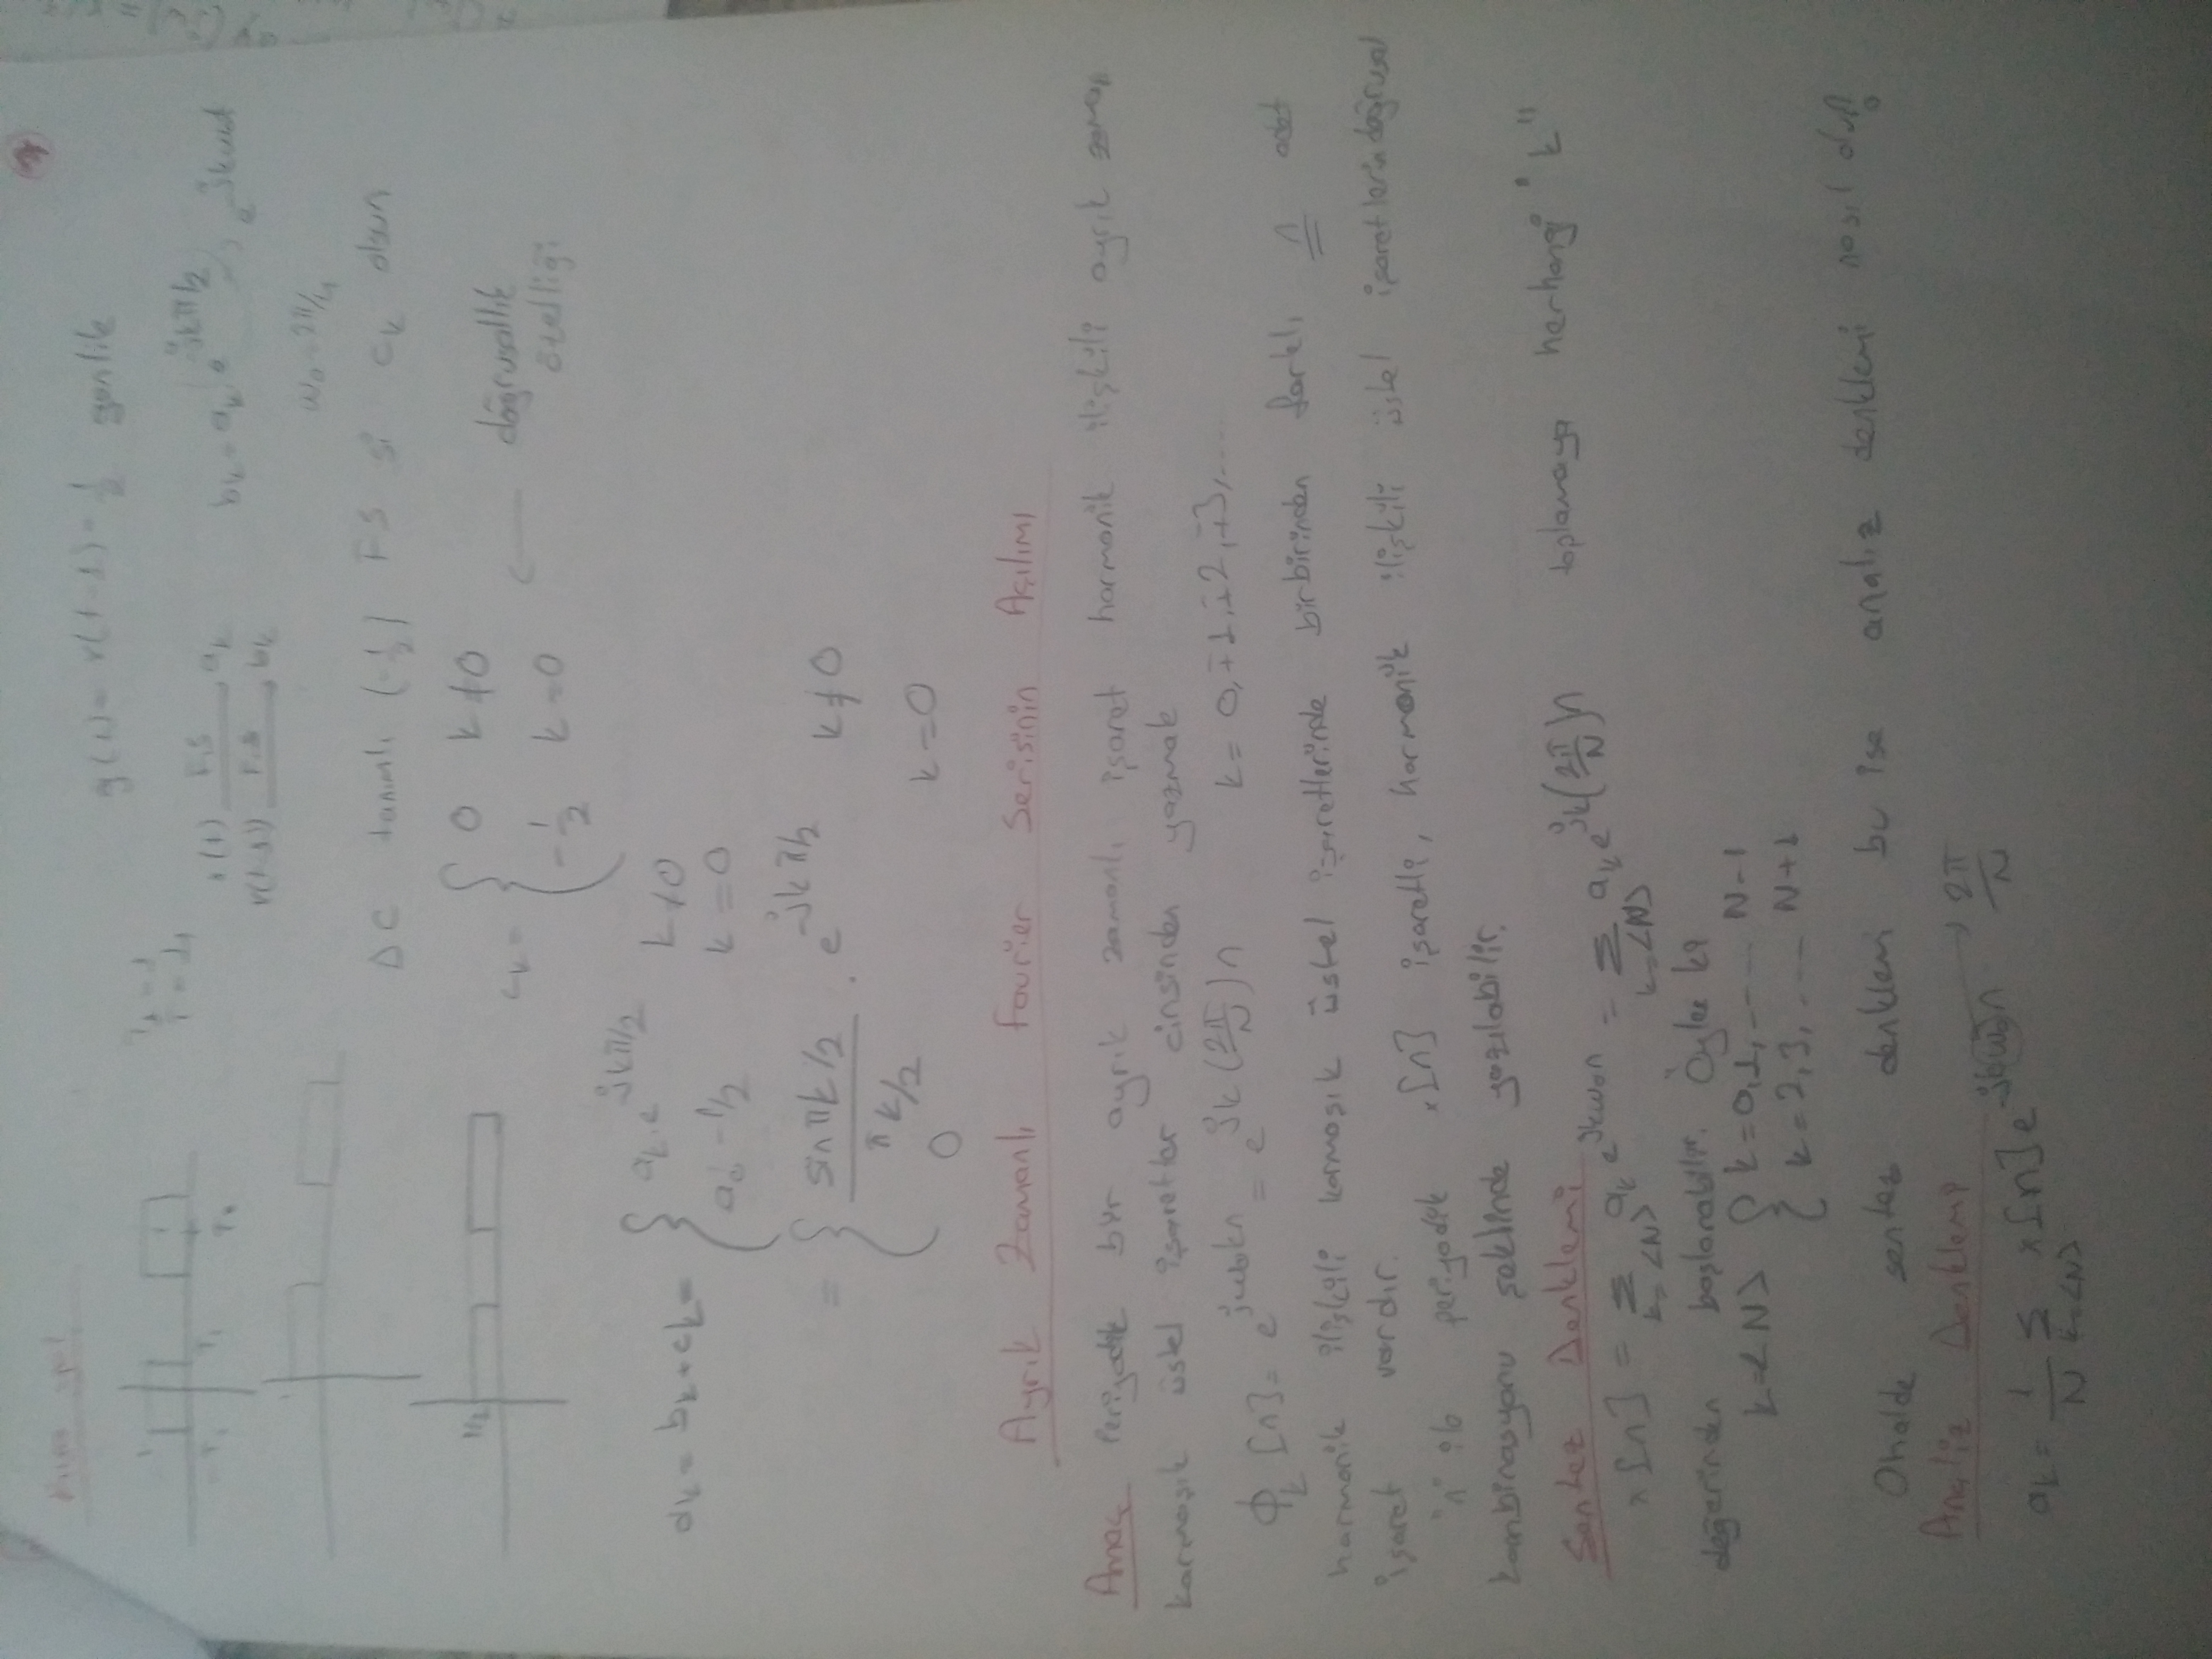 g(t) = x(t-1) - 1/2 genlik
x(t) F.S → ak
x(t-1) F.S → bk
T = 4 T1 = 1
ω0 = 2π/4
DC tanımlı (-1/2) FS si ck olsun
ck = { 0 k≠0
-1/2 k=0
doğrusallık
özelliği
dk = bk + ck = { ak.e^-jkπ/2 k≠0
a0 - 1/2 k=0
= { sin πk/2 / πk/2 . e^-jkπ/2 k≠0
0 k=0
Ayrık Zamanlı Fourier Serisinin Açılımı
Amaç Periyodik bir ayrık zamanlı işaret harmonik ilişkili ayrık zaman
karmaşık üstel işaretler cinsinden yazmak
Φk [n] = e^jω0kn = e^jk(2π/N)n k = 0, ∓1, ∓2, ∓3, .....
harmonik ilişkili karmaşık üstel işaretlerinde birbirinden farklı n adet
işaret vardır.
"n" ile periyodik x[n] işareti, harmonik ilişkili üstel işaretlerin doğrusal
kombinasyonu şeklinde yazılabilir.
Sentez Denklemi
x[n] = Σ k=<N> ak e^jkω0n = Σ k=<N> ak e^jk(2π/N)n toplamaya herhangi "k"
değerinden başlanabilir. Öyle ki
k=<N> { k=0,1, ---- N-1
k=2,3, ---- N+1
Ohalde sentez denklemi bu ise analiz denklemi nasıl olur?
Analiz Denklemi
ak = 1/N Σ k=<N> x[n] e^-jkω0n → 2π/N